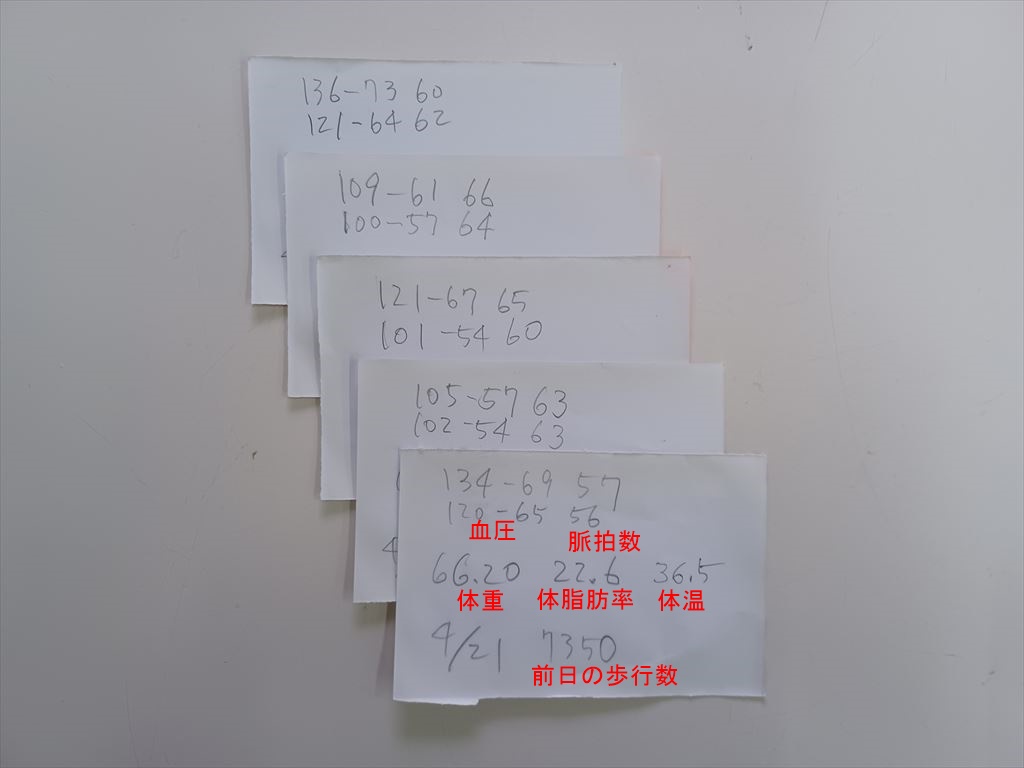 136-73 60
121-64 62
109-61 66
100-57 64
121-67 65
101-54 60
105-57 63
102-54 63
134-69 57
120-65 56
血圧 脈拍数
66.20 22.6 36.5
体重 体脂肪率 体温
4/21 7350
前日の歩行数